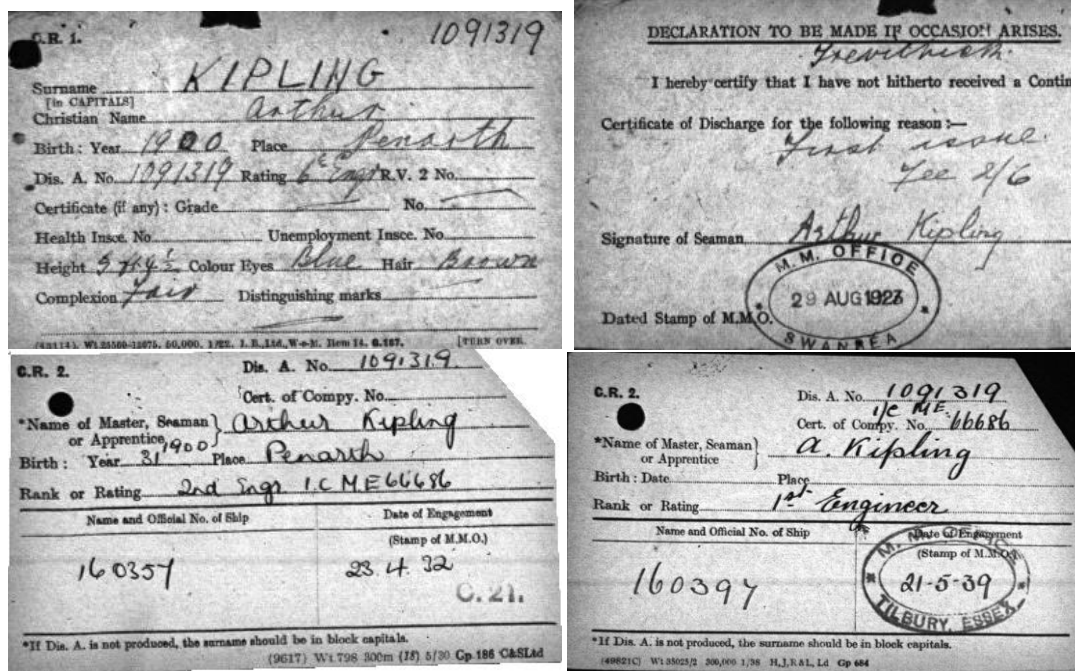 C.R. 1.
1091319
Surname KIPLING
[in CAPITALS]
Christian Name Arthur
Birth: Year 1900 Place Penarth
Dis. A. No. 1091319 Rating 6 Engr R.V. 2 No.
Certificate (if any): Grade No.
Health Insce. No. Unemployment Insce. No.
Height 5 ft 4½ Colour Eyes Blue Hair Brown
Complexion Fair Distinguishing marks
[TURN OVER.
DECLARATION TO BE MADE IF OCCASION ARISES.
Trevithick
I hereby certify that I have not hitherto received a Contin
Certificate of Discharge for the following reason :—
First issue.
Fee 2/6
Signature of Seaman Arthur Kipling
M.M. OFFICE
29 AUG 1923
Dated Stamp of M.M.O.
SWANSEA
C.R. 2.
Dis. A. No. 1091319
Cert. of Compy. No.
*Name of Master, Seaman or Apprentice } Arthur Kipling
Birth: Year 31 1900 Place Penarth
Rank or Rating 2nd Engr 1.C M.E 66686
Name and Official No. of Ship Date of Engagement
(Stamp of M.M.O.)
160357 23.4.32
C.21.
*If Dis. A. is not produced, the surname should be in block capitals.
(9617) Wt 798 300m (18) 5/30 Gp 186 C&SLtd
C.R. 2.
Dis. A. No. 1091319
1/C M.E.
Cert. of Compy. No. 66686
*Name of Master, Seaman or Apprentice } A. Kipling
Birth: Date Place
Rank or Rating 1st Engineer
Name and Official No. of Ship Date of Engagement
(Stamp of M.M.O.)
160397 21-5-39
TILBURY, ESSEX
*If Dis. A. is not produced, the surname should be in block capitals.
(49821C) Wt 35025/2 300,000 1/38 H.J.R&L, Ld Gp 684